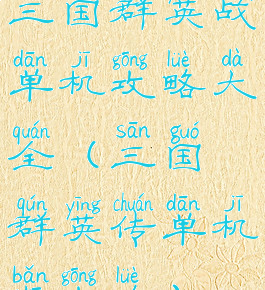 三国群英战
dān jī gōng lüè dà
单机攻略大
quán sān guó
全(三国
qún yīng chuán dān jī
群英传单机
bǎn gōng lüè